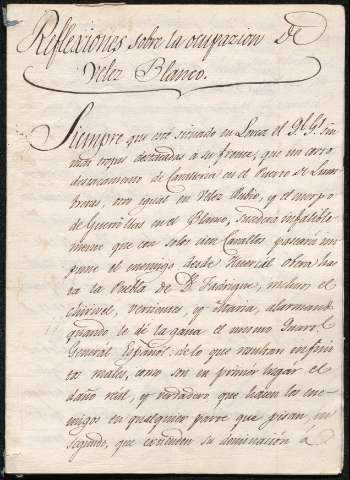 Reflexiones sobre la ocupazion De
Velez Blanco.
Siempre que esté situado en Lorca el Ql. Gl. sin
mas tropas destacadas a su frente, que un corto
destacamento de Cavalleria en el Puerto de Lum
breras, otro igual en Velez Rubio, y el cuerpo
de Guerrillas en el Blanco, sucedera infalible
mente que con solos cien Cavallos paseara im
pune el enemigo desde Huercal Obera has
ta la Puebla de Dn. Fadrique, incluso el
chirivel, vertientes, y Maria, alarmando
quando le dé la gana el mismo Quartel
General Español: de lo que resultan infini
tos males, como son en primer lugar el
daño real, y verdadero que hacen los ene
migos en qualquier parte que pisan, en
segundo, que extienden su dominacion á